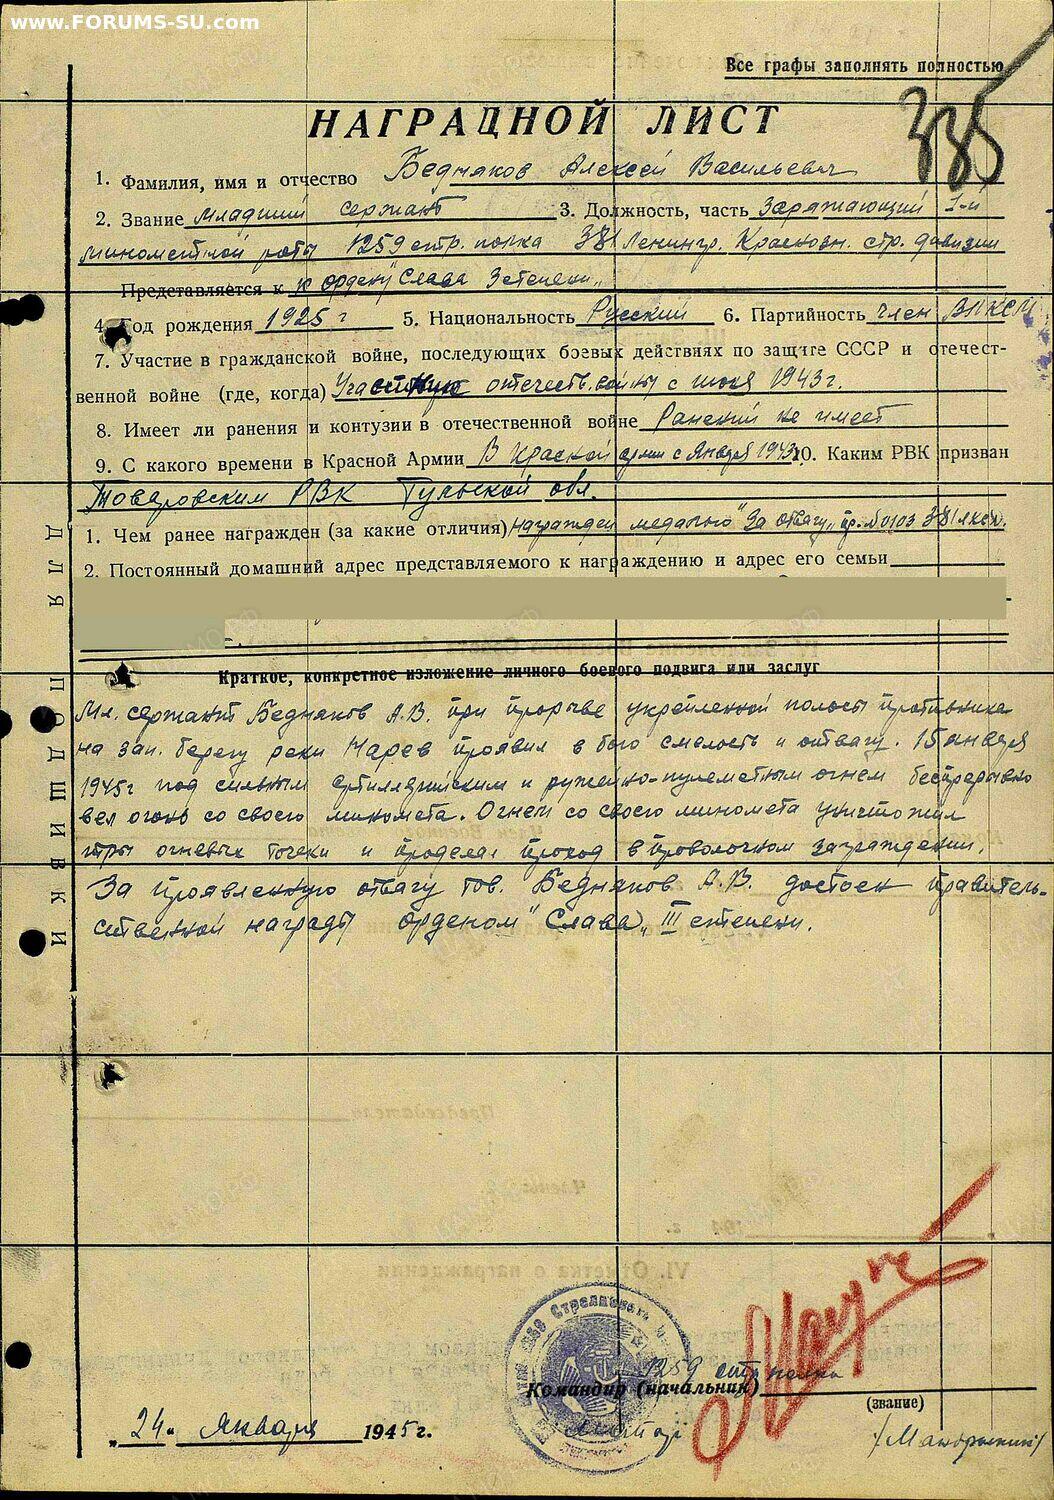 www.FORUMS-SU.com
Все графы заполнять полностью
335
НАГРАДНОЙ ЛИСТ
1. Фамилия, имя и отчество Бедняков Алексей Васильевич
2. Звание младший сержант 3. Должность, часть Заряжающий 1-й
минометной роты 1259 стр. полка 381 Ленингр. Краснозн. стр. дивизии
Представляется к к ордену "Слава 3 степени"
4. Год рождения 1925 г 5. Национальность Русский 6. Партийность член ВЛКСМ
7. Участие в гражданской войне, последующих боевых действиях по защите СССР и отечест-
венной войне (где, когда) Участник отечеств. войны с июня 1943 г.
8. Имеет ли ранения и контузии в отечественной войне Ранений не имеет
9. С какого времени в Красной Армии В Красной армии с Января 1943 10. Каким РВК призван
Товарковским РВК Тульской обл.
1. Чем ранее награжден (за какие отличия) Награжден медалью "За отвагу" пр. №0103 381
2. Постоянный домашний адрес представляемого к награждению и адрес его семьи
Краткое, конкретное изложение личного боевого подвига или заслуг
Мл. сержант Бедняков А.В. при прорыве укрепленной полосы противника
на зап. берегу реки Нарев проявил в бою смелость и отвагу. 15 января
1945г под сильным артиллерийским и ружейно-пулеметным огнем беспрерывно
вел огонь со своего миномета. Огнем со своего миномета уничтожил
три огневых точки и проделал проход в проволочном заграждении.
За проявленную отвагу тов. Бедняков А.В. достоен правитель-
ственной награды орденом "Слава" III степени.
ДЛЯ ПОДШИВКИ
1259 стр полка
Командир (начальник)
(звание)
"24" Января 1945 г.